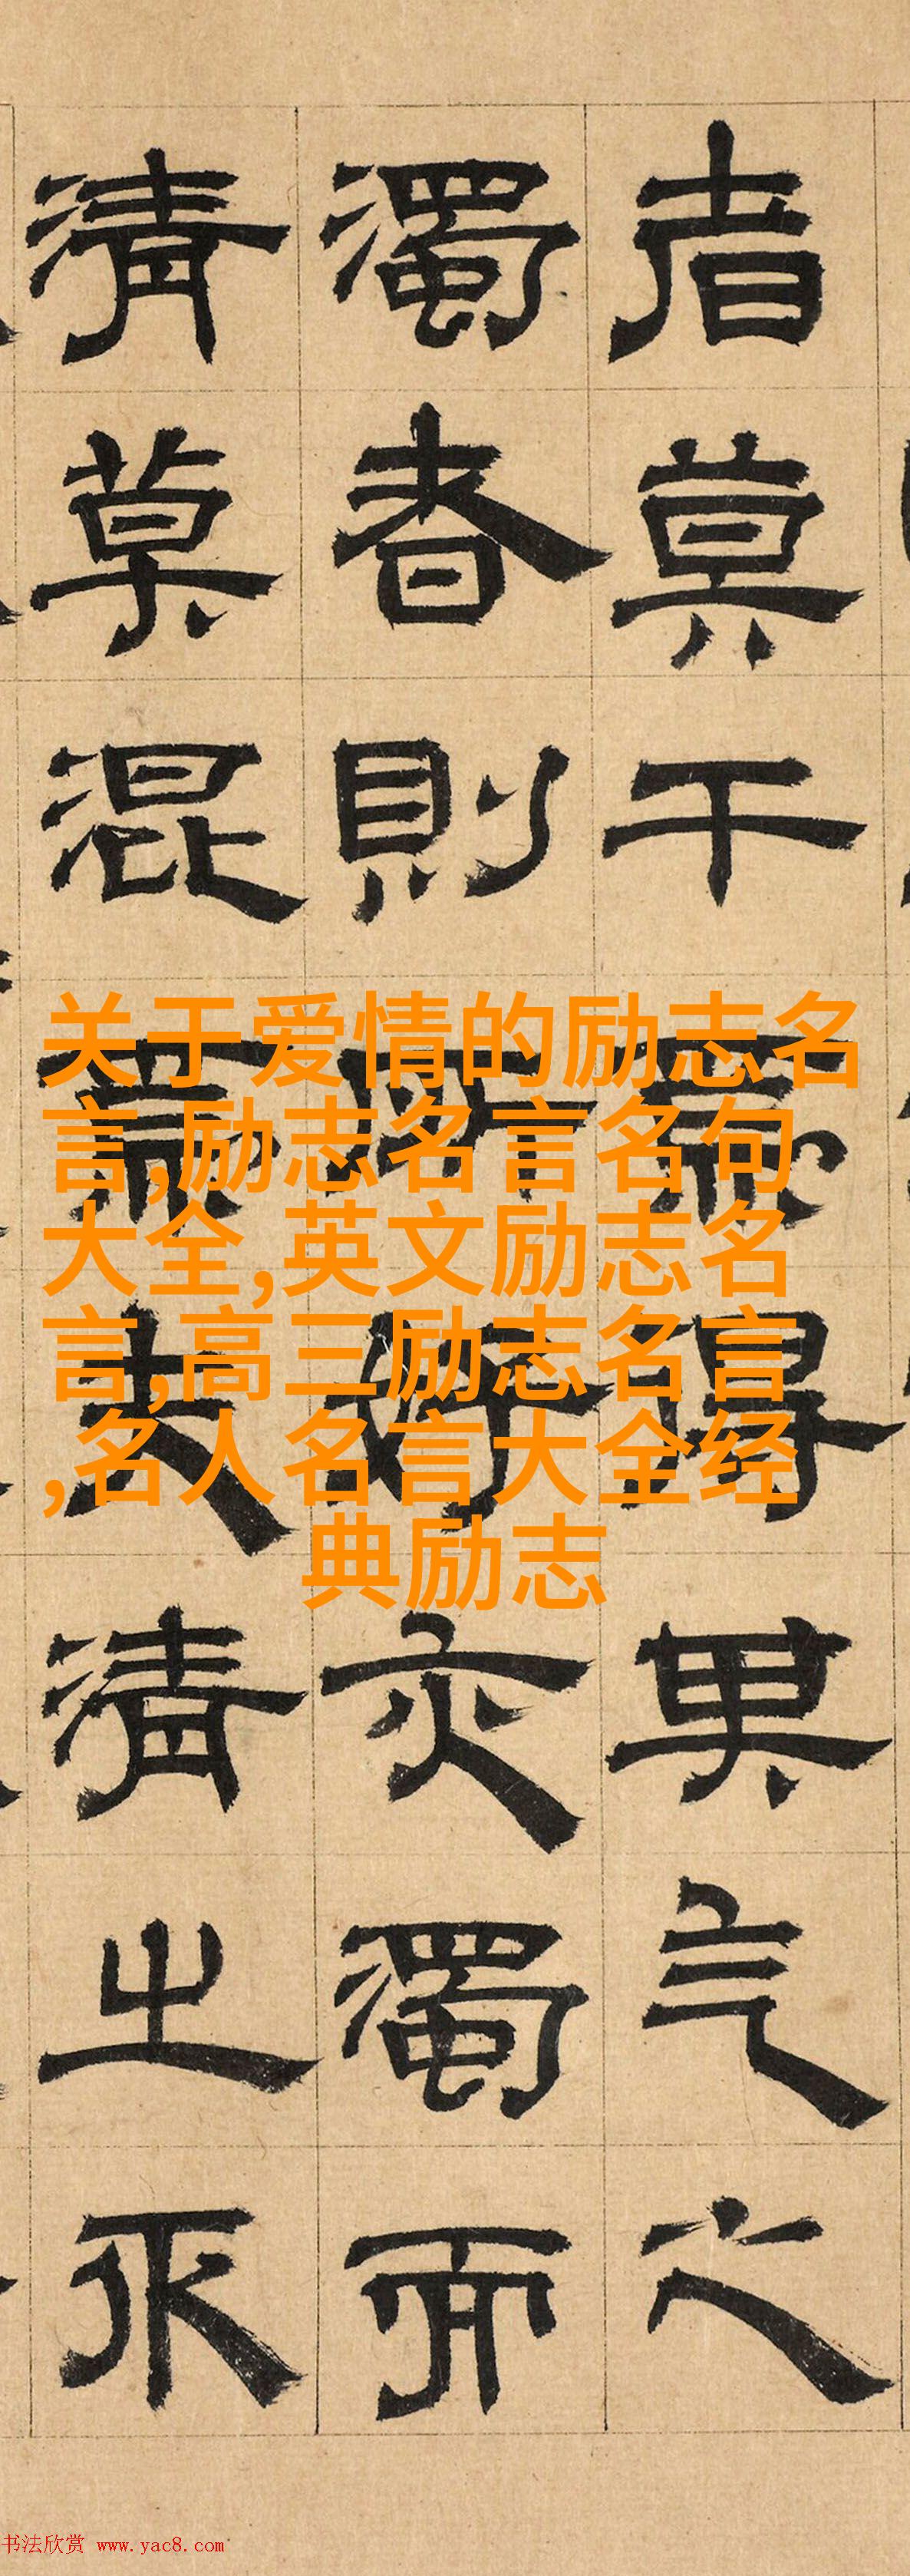 者莫于得其气之
濁者則所好亦濁而
清莫混夫清之
关于爱情的励志名
言,励志名言名句
大全,英文励志名
言,高三励志名言
,名人名言大全经
典励志
书法欣赏 www.yac8.com